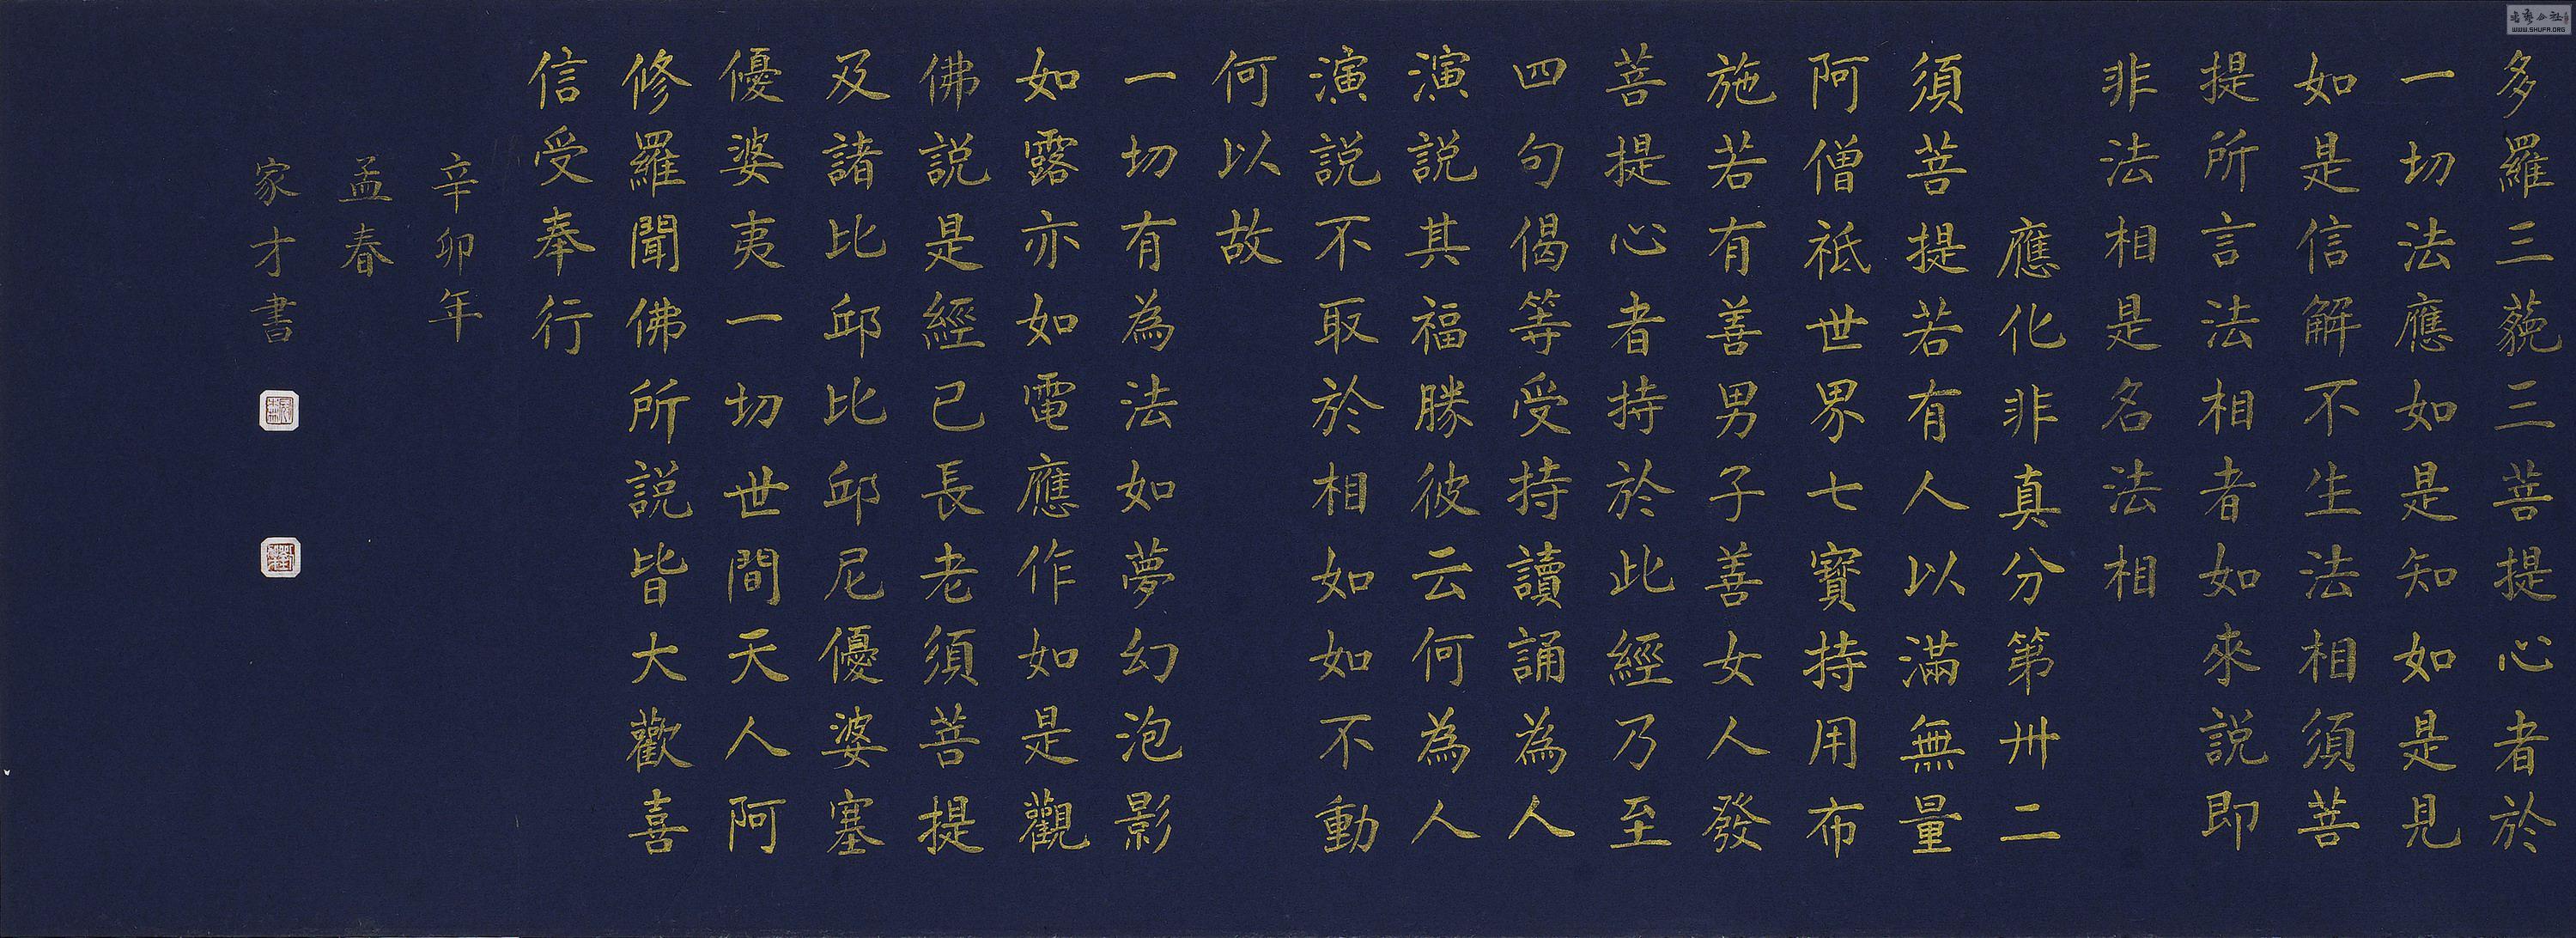 多羅三藐三菩提心者於
一切法應如是知如是見
如是信解不生法相須菩
提所言法相者如來説即
非法相是名法相
應化非真分第卅二
須菩提若有人以滿無量
阿僧祇世界七寳持用布
施若有善男子善女人發
菩提心者持於此經乃至
四句偈等受持讀誦為人
演説其福勝彼云何為人
演説不取於相如如不動
何以故
一切有為法如夢幻泡影
如露亦如電應作如是觀
佛説是經已長老須菩提
及諸比邱比邱尼優婆塞
優婆夷一切世間天人阿
修羅聞佛所説皆大歡喜
信受奉行
辛卯年
孟春
家才書
WWW.SHUFA.ORG